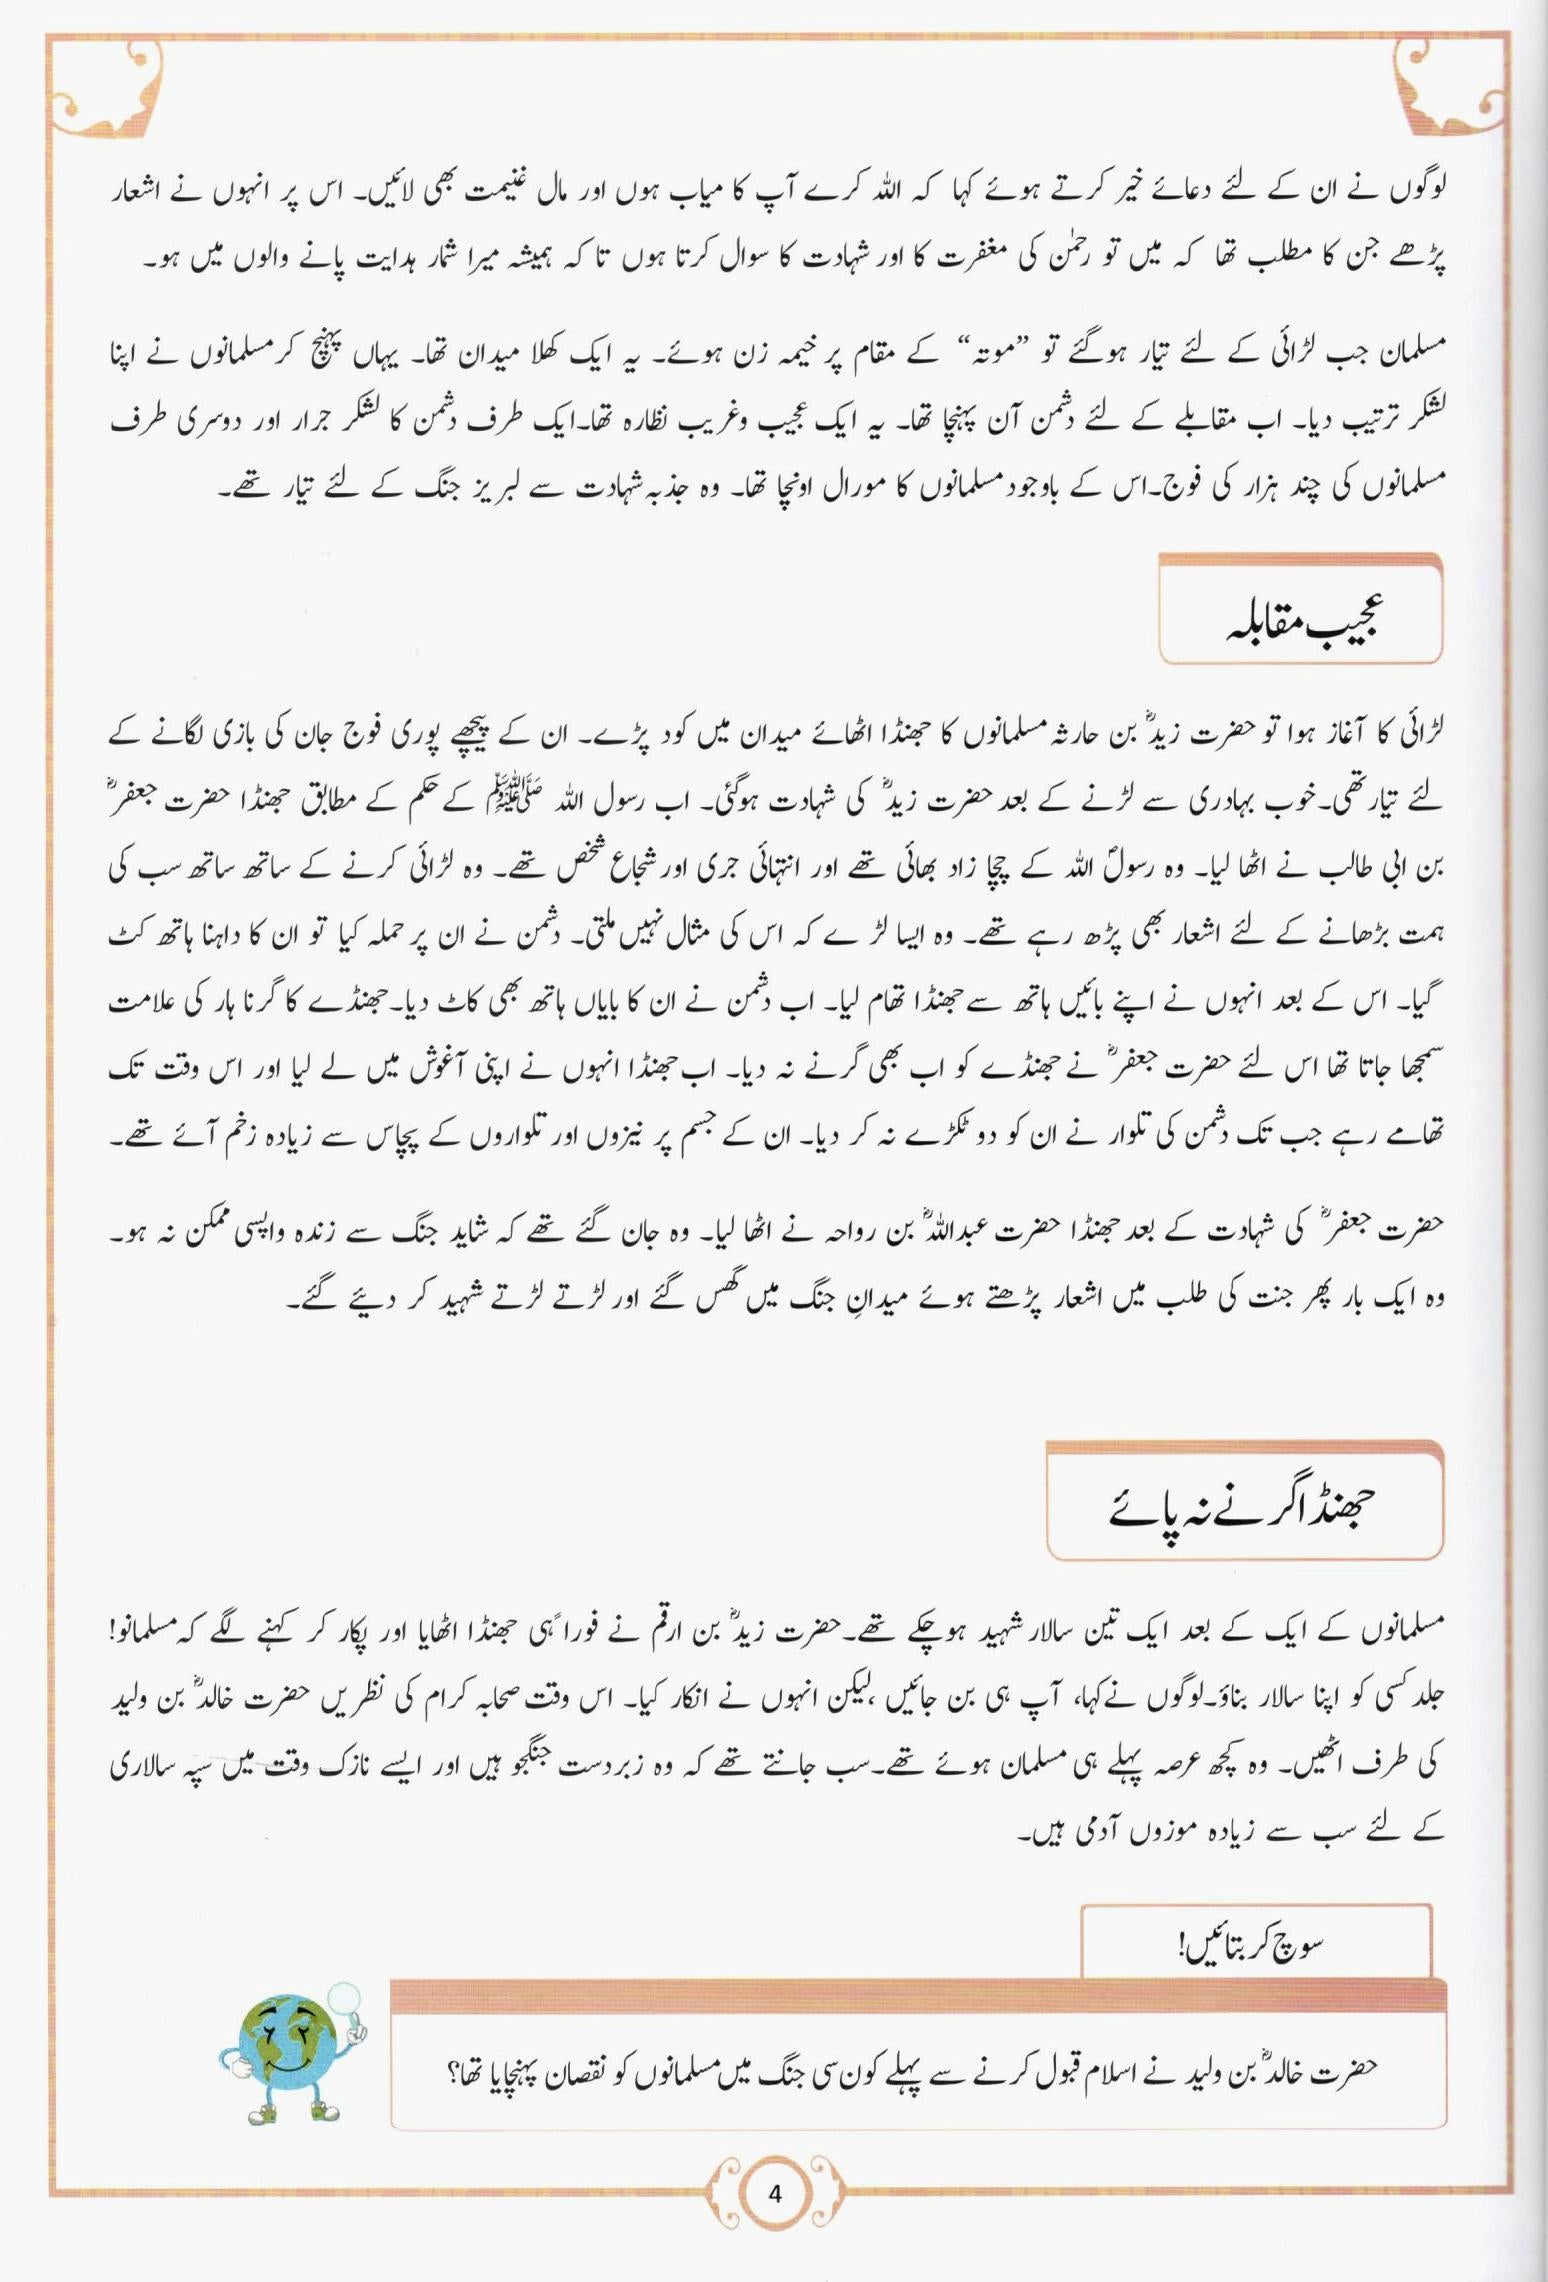 لوگوں نے ان کے لئے دعائے خیر کرتے ہوئے کہا کہ اللہ کرے آپ کا میاب ہوں اور مال غنیمت بھی لائیں۔ اس پر انہوں نے اشعار
پڑھے جن کا مطلب تھا کہ میں تو رحمٰن کی مغفرت کا اور شہادت کا سوال کرتا ہوں تا کہ ہمیشہ میرا شمار ہدایت پانے والوں میں ہو۔
مسلمان جب لڑائی کے لئے تیار ہوگئے تو ”موتہ“ کے مقام پر خیمہ زن ہوئے۔ یہ ایک کھلا میدان تھا۔ یہاں پہنچ کر مسلمانوں نے اپنا
لشکر ترتیب دیا۔ اب مقابلے کے لئے دشمن آن پہنچا تھا۔ یہ ایک عجیب وغریب نظارہ تھا۔ایک طرف دشمن کا لشکر جرار اور دوسری طرف
مسلمانوں کی چند ہزار کی فوج۔اس کے باوجود مسلمانوں کا مورال اونچا تھا۔ وہ جذبہ شہادت سے لبریز جنگ کے لئے تیار تھے۔
عجیب مقابلہ
لڑائی کا آغاز ہوا تو حضرت زیدؓ بن حارثہ مسلمانوں کا جھنڈا اٹھائے میدان میں کود پڑے۔ ان کے پیچھے پوری فوج جان کی بازی لگانے کے
لئے تیار تھی۔خوب بہادری سے لڑنے کے بعد حضرت زیدؓ کی شہادت ہوگئی۔ اب رسول اللہ ﷺ کے حکم کے مطابق جھنڈا حضرت جعفرؓ
بن ابی طالب نے اٹھا لیا۔ وہ رسولؐ اللہ کے چچا زاد بھائی تھے اور انتہائی جری اور شجاع شخص تھے۔ وہ لڑائی کرنے کے ساتھ ساتھ سب کی
ہمت بڑھانے کے لئے اشعار بھی پڑھ رہے تھے۔ وہ ایسا لڑے کہ اس کی مثال نہیں ملتی۔ دشمن نے ان پر حملہ کیا تو ان کا داہنا ہاتھ کٹ
گیا۔ اس کے بعد انہوں نے اپنے بائیں ہاتھ سے جھنڈا تھام لیا۔ اب دشمن نے ان کا بایاں ہاتھ بھی کاٹ دیا۔جھنڈے کا گرنا ہار کی علامت
سمجھا جاتا تھا اس لئے حضرت جعفرؓ نے جھنڈے کو اب بھی گرنے نہ دیا۔ اب جھنڈا انہوں نے اپنی آغوش میں لے لیا اور اس وقت تک
تھامے رہے جب تک دشمن کی تلوار نے ان کو دو ٹکڑے نہ کر دیا۔ ان کے جسم پر نیزوں اور تلواروں کے پچاس سے زیادہ زخم آئے تھے۔
حضرت جعفرؓ کی شہادت کے بعد جھنڈا حضرت عبداللہؓ بن رواحہ نے اٹھا لیا۔ وہ جان گئے تھے کہ شاید جنگ سے زندہ واپسی ممکن نہ ہو۔
وہ ایک بار پھر جنت کی طلب میں اشعار پڑھتے ہوئے میدانِ جنگ میں گھس گئے اور لڑتے لڑتے شہید کر دیئے گئے۔
جھنڈا گرنے نہ پائے
مسلمانوں کے ایک کے بعد ایک تین سالار شہید ہوچکے تھے۔حضرت زیدؓ بن ارقم نے فوراً ہی جھنڈا اٹھایا اور پکار کر کہنے لگے کہ مسلمانو!
جلد کسی کو اپنا سالار بناؤ۔لوگوں نے کہا، آپ ہی بن جائیں ،لیکن انہوں نے انکار کیا۔ اس وقت صحابہ کرام کی نظریں حضرت خالدؓ بن ولید
کی طرف اٹھیں۔ وہ کچھ عرصہ پہلے ہی مسلمان ہوئے تھے۔سب جانتے تھے کہ وہ زبردست جنگجو ہیں اور ایسے نازک وقت میں سپہ سالاری
کے لئے سب سے زیادہ موزوں آدمی ہیں۔
سوچ کر بتائیں!
حضرت خالدؓ بن ولید نے اسلام قبول کرنے سے پہلے کون سی جنگ میں مسلمانوں کو نقصان پہنچایا تھا؟
4